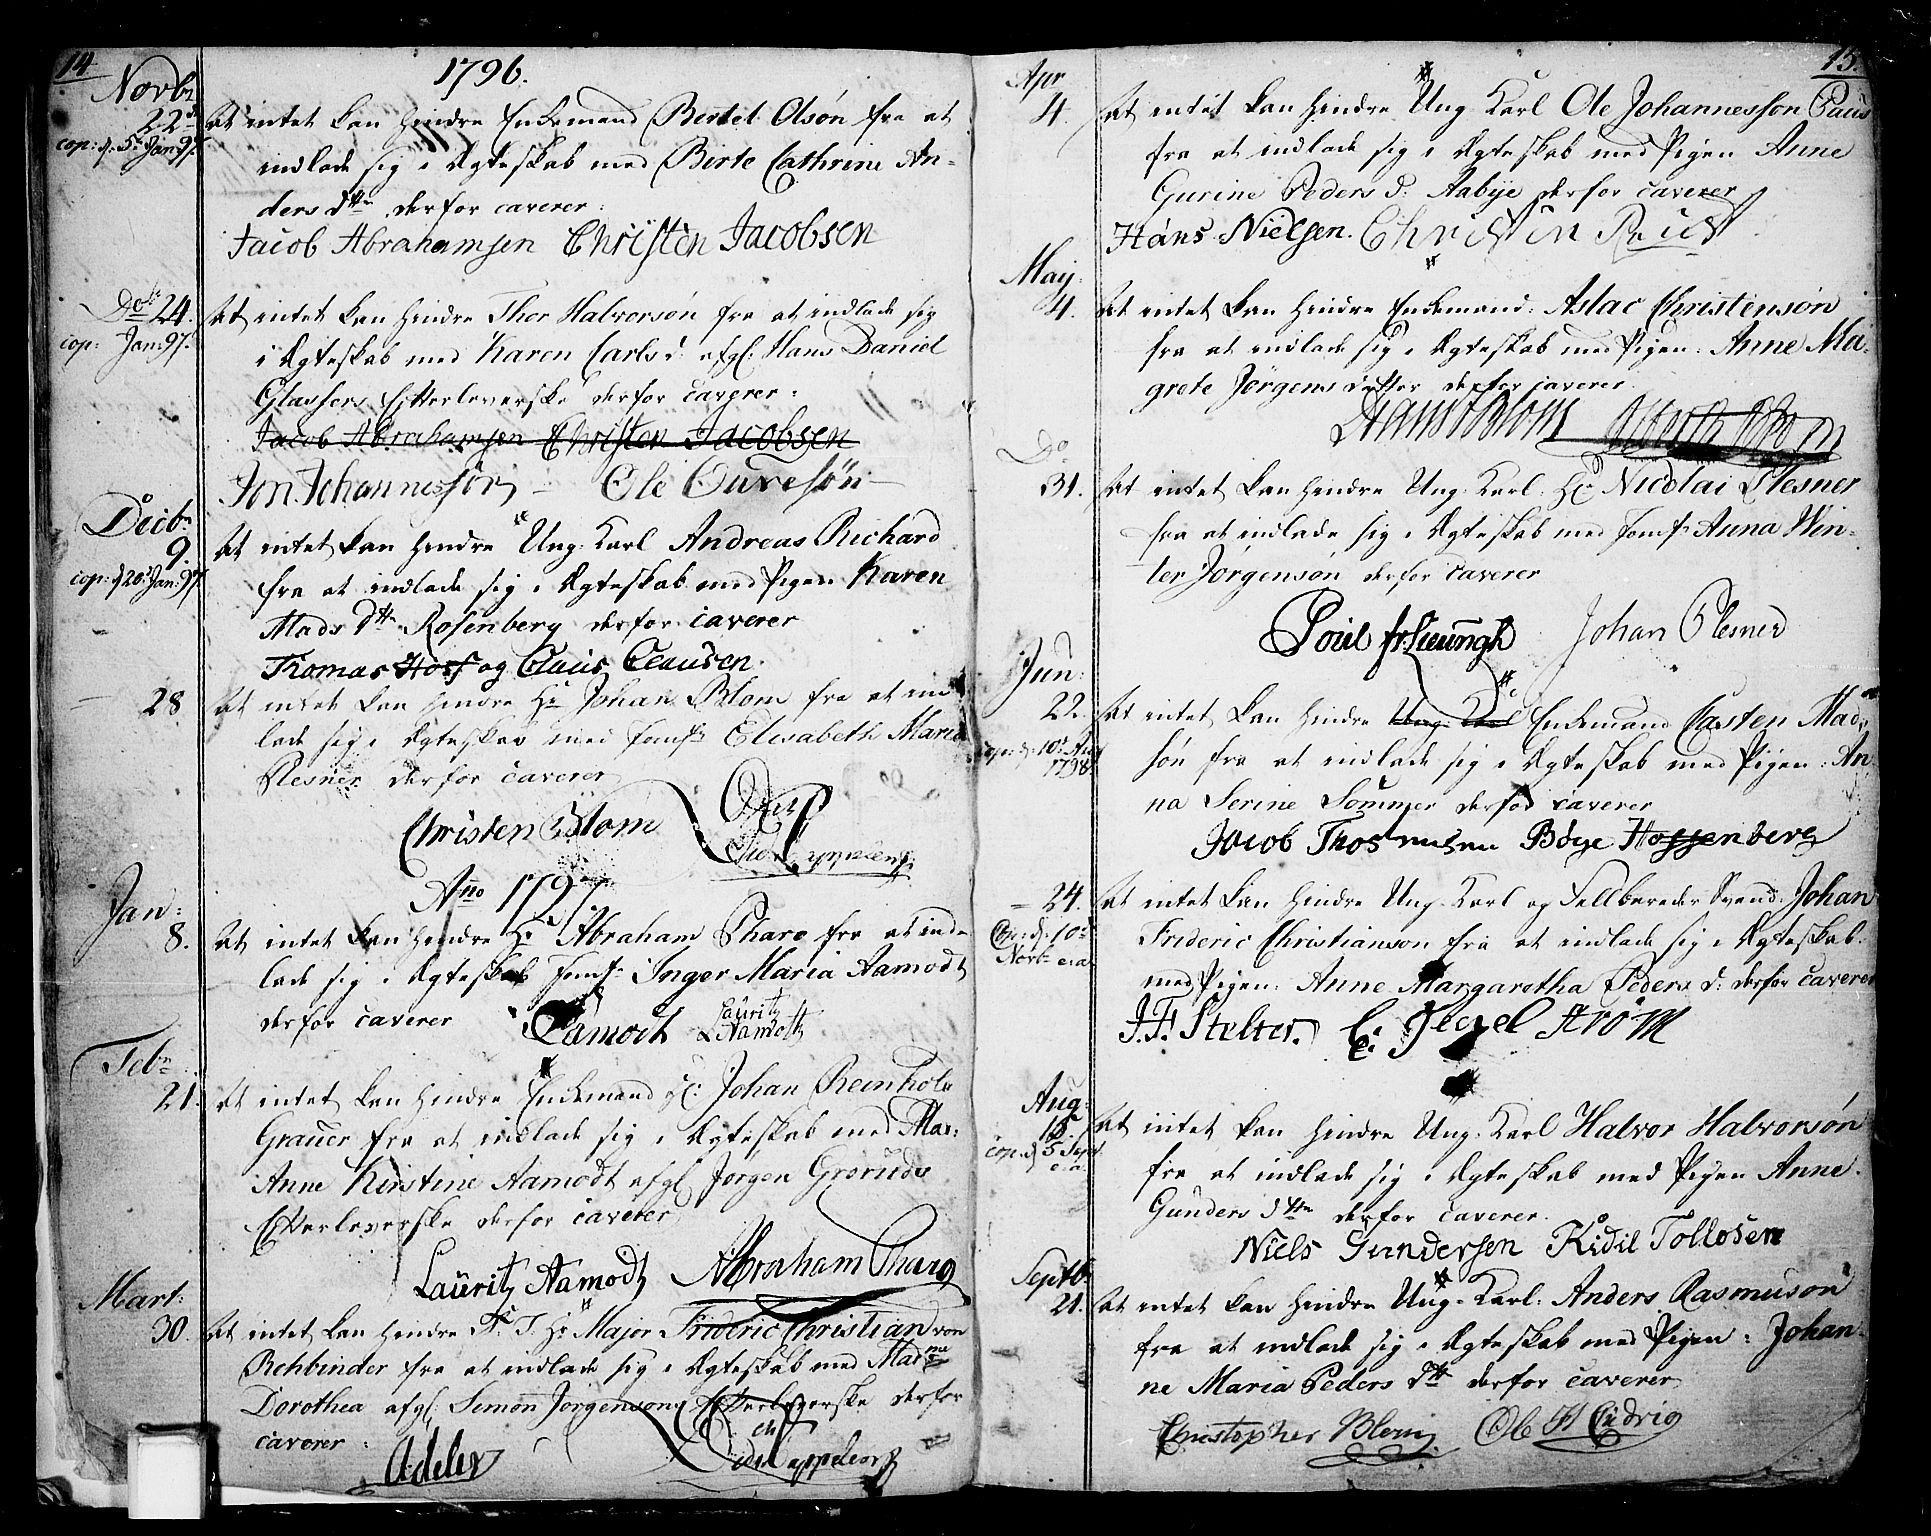 14
1796.
Novbr
22de
cop: d. 5t Jan 97.
At intet kan hindre Enkemand Bertel Olsøn fra at
indlade sig i Ægteskab med Birte Cathrine An-
ders dtr derfor caverer:
Jacob Abrahamsen Christen Jacobsen
Do 24.
cop: Jan: 97.
At intet kan hindre Thor Halvorsøn fra at indlade sig
i Ægteskab med Karen Carls d: afgl: Hans Daniel
Glassers Efterleverske derfor caverer:
Jacob Abrahamsen Christen Jacobsen
Jon Johannessøn — Ole Ouvesøn
Decbr
9.
cop: d 20 Jan: 97.
At intet kan hindre Ung Karl Andreas Richard
fra at indlade sig i Ægteskab med Pigen Karen
Mads dtr Rosenberg derfor caverer
Thomas Hoff og Claus Clausen.
— 28
At intet kan hindre Hr Johan Blom fra at ind
lade sig i Ægteskab med Jomfr Elisabeth Maria
Plesner derfor caverer
Christen Blom
Ano 1797.
Jan:
8.
At intet kan hindre Hr Abraham Pharo fra at ind
lade sig i Ægteskab Jomfr: Inger Maria Aamodt
derfor caverer
Aamodt Lauritz
Aamodt
Febr
21.
At intet kan hindre Enkemand Hr: Johan Reinholt
Grauer fra at indlade sig i Ægteskab med Mad:
Anne Kirstine Aamodt afgl Jørgen Groruds
Efterleverske derfor caverer
Lauritz Aamodt Abraham Pharo
Mart:
30.
At intet kan hindre S. T. Hr Major Frideric Christian von
Rehbinder fra at indlade sig i Ægteskab med Madme
Dorothea afgl: Simon Jørgensøns Efterleverske derfor
caverer:
Adeler
15.
Apr
4.
At intet kan hindre Ung Karl Ole Johannessøn Paus
fra at indlade sig i Ægteskab med Pigen Anne
Gurine Peders d: Aabye derfor caverer
Hans Nielsen. Christen Paus
Maij
4.
At intet kan hindre Enkemand: Aslac Christensøn
fra at indlade sig i Ægteskab med Pigen: Anne Ma-
grete Jørgens datter derfor caverer
Hans Blom
Do
31.
At intet kan hindre Ung Karl Hr: Nicolai Plesner
fra at indlade sig i Ægteskab med Jomfr Anna Win-
ter Jørgensøn derfor caverer
Johan Plesner
Jun:
22.
cop: d: 10t Aug
1798.
At intet kan hindre Ung Karl Enkemand Casten Mads
søn fra at indlade sig i Ægteskab med Pigen: An
na Serine Sommer derfor caverer
Jacob Thommesen Böye Hoggenberg
— 24.
Cop: d: 10de
Novbr e:a
At intet kan hindre Ung Karl og Feldbereder Svend: Johan
Frideric Christiansøn fra at indlade sig i Ægteskab
med Pigen: Anne Margaretha Peders d: derfor caverer
J. F. Stelter.
Aug:
15
cop: d 5 Sept
e:a
At intet kan hindre Ung Karl Halvor Halvorsøn
fra at indlade sig i Ægteskab med Pigen Anne
Gunders dtr derfor caverer
Niels Gundersen Kidil Tollosen
Septbr
21.
At intet kan hindre Ung Karl: Anders Rasmusøn
fra at indlade sig i Ægteskab med Pigen: Johan-
ne Maria Peders dtr derfor caverer
Christopher Blom